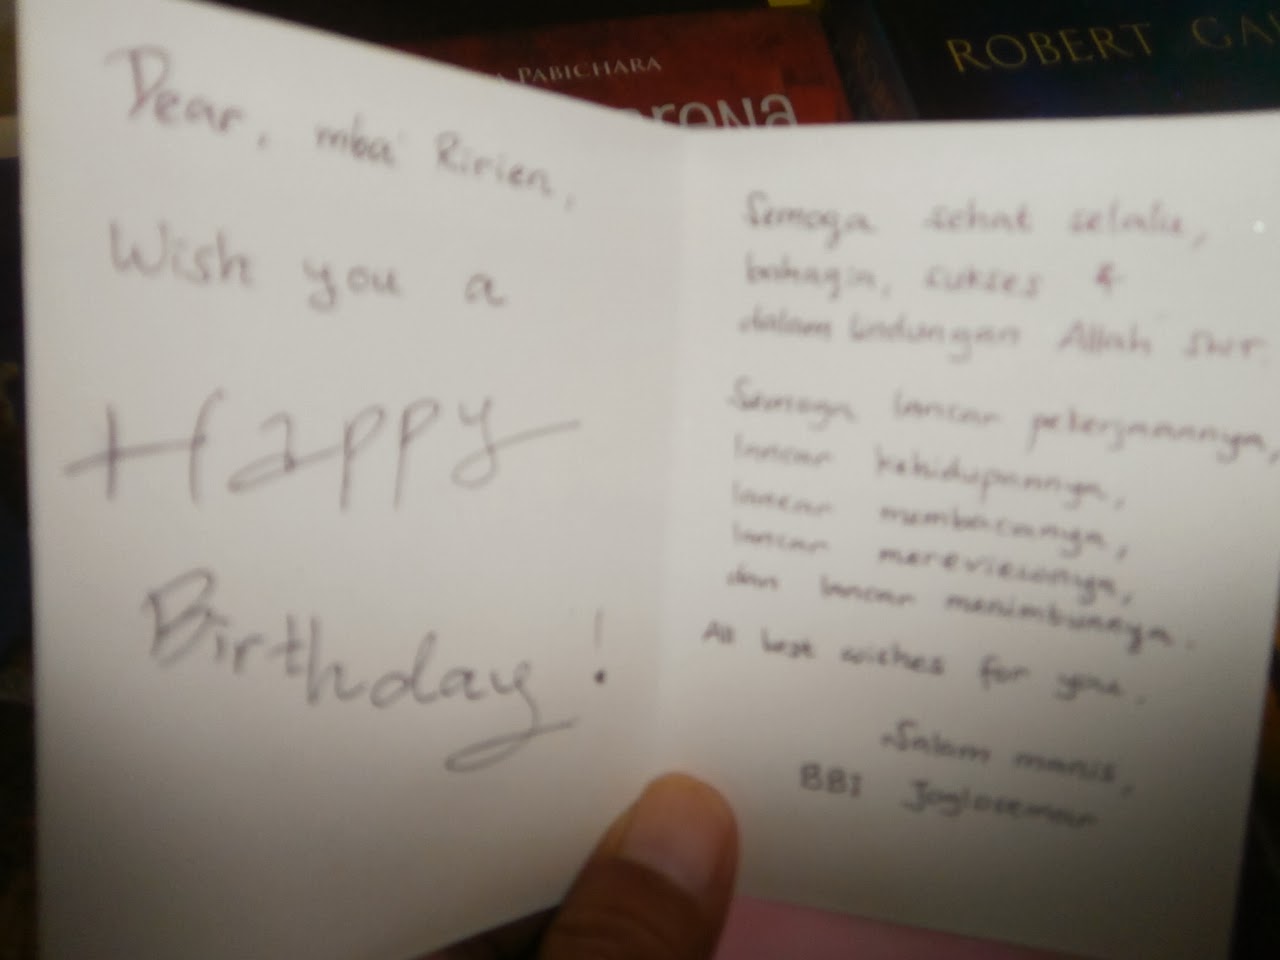 PABICHARA
ROBERT GA
Dear, mba' Ririen,
Wish you a
Happy
Birthday!
Semoga sehat selalu,
bahagia, sukses &
dalam lindungan Allah SWT.
Semoga lancar pekerjaannya,
lancar kehidupannya,
lancar membacanya,
lancar mereviewnya,
dan lancar menimbunnya.
All best wishes for you.
Salam manis,
BBI Joglosemar